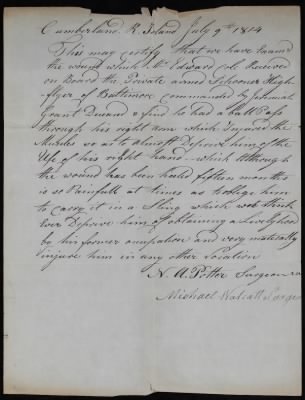 Cumberland R. Island July 9th 1814
This may certify that we have Examd
the wound which Mr Edward Cole Received
on Board the Private armed Schooner High-
flyer of Baltimore Commanded by Jeremiah
Grant Durand & find he had a ball Pass
through his right arm which Injured the
Muscles so as to almost Deprive him of the
Use of his right hand — which although
the wound has been healed fifteen months
is so Painfull at times as to oblige him
to Carry it in a Sling which we think
Ever Deprive him of obtaining a Livelyhood
by his former occupation and very materially
injure him in any other Vocation
A. A. Potter Surgeon
Michael Walcott Surgeon